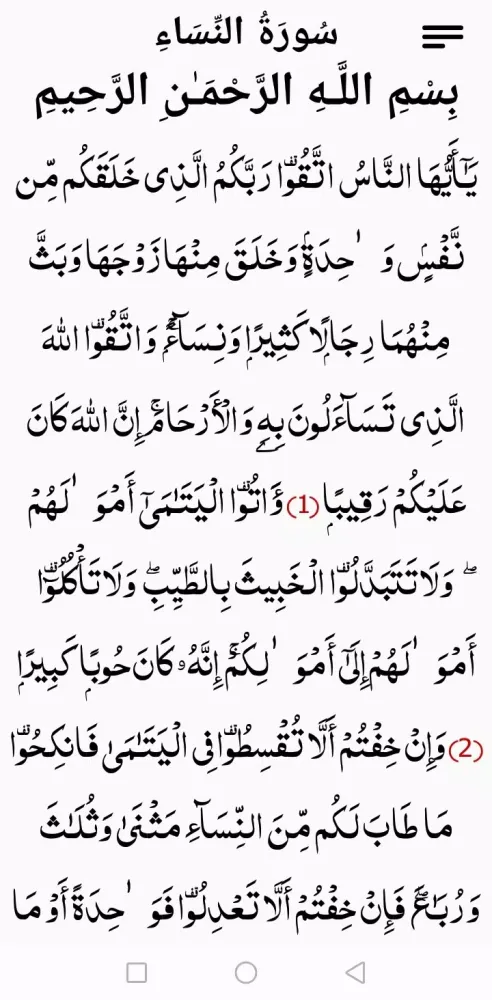 سُورَةُ النِّسَاءِ
بِسْمِ اللَّهِ الرَّحْمَـٰنِ الرَّحِيمِ
يَـٰٓأَيُّهَا النَّاسُ اتَّقُوا۟ رَبَّكُمُ الَّذِى خَلَقَكُم مِّن
نَّفْسٍ وَٰحِدَةٍ وَخَلَقَ مِنْهَا زَوْجَهَا وَبَثَّ
مِنْهُمَا رِجَالًا كَثِيرًا وَنِسَآءً ۚ وَاتَّقُوا۟ اللَّهَ
الَّذِى تَسَآءَلُونَ بِهِۦ وَالْأَرْحَامَ ۚ إِنَّ اللَّهَ كَانَ
عَلَيْكُمْ رَقِيبًا (1) وَءَاتُوا۟ الْيَتَـٰمَىٰٓ أَمْوَٰلَهُمْ
ۖ وَلَا تَتَبَدَّلُوا۟ الْخَبِيثَ بِالطَّيِّبِ ۖ وَلَا تَأْكُلُوٓا۟
أَمْوَٰلَهُمْ إِلَىٰٓ أَمْوَٰلِكُمْ ۚ إِنَّهُۥ كَانَ حُوبًا كَبِيرًا
(2) وَإِنْ خِفْتُمْ أَلَّا تُقْسِطُوا۟ فِى الْيَتَـٰمَىٰ فَانكِحُوا۟
مَا طَابَ لَكُم مِّنَ النِّسَآءِ مَثْنَىٰ وَثُلَـٰثَ
وَرُبَـٰعَ ۖ فَإِنْ خِفْتُمْ أَلَّا تَعْدِلُوا۟ فَوَٰحِدَةً أَوْ مَا